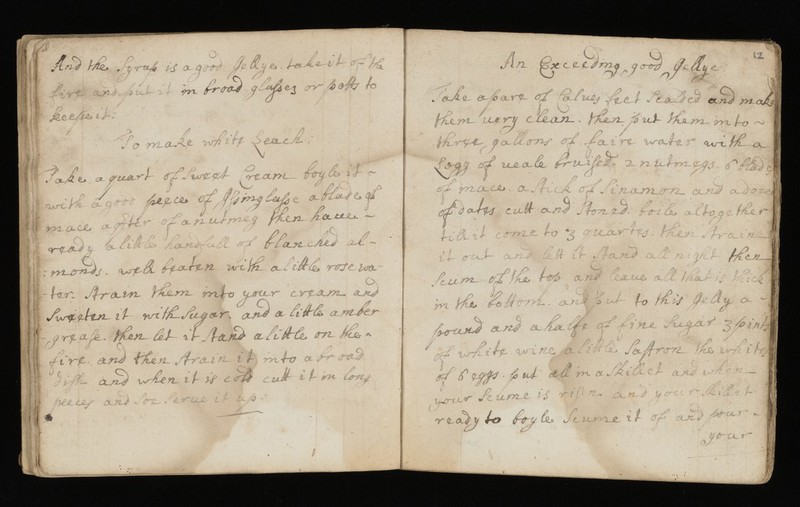 And the Syrup is a good Jellye. take it of the
fire and put it in broad glasses or potts to
keepe it:
To make white Leach:
Take a quart of Sweet Cream boyle it ~
with a good peece of Isinglasse a blade of
mace a qrter of a nutmeg then have ~
ready a little handfull of blanched al-
:monds. well beaten with a little rose wa-
ter. Strain them into your cream and
Sweeten it with Sugar, and a little amber
grease. then let it Stand a little on the ~
fire. and then Strain it into a broad
dish and when it is cold cutt it in long
peeces and Soe Serve it up:
12
An Exceeding good Jellye
Take a pare of Calves feet Scalded and make
them very clean. then put them into ~
three gallons of faire water with a
Legg of veale bruised 2 nutmegs 6 blades
of mace. a Stick of Sinamon and a dozen
of dates cutt and Stoned. boile altogether
till it come to 3 quartes. then Straine
it out and lett it Stand all night then
Scum of the top and leave all that is thick
in the bottom. and put to this Jelly a ~
pound and a halfe of fine Sugar 3 pints
of white wine a little Saffron the whites
of 6 eggs. put all in a Skillet and when
your Scume is risen and your Skillet
ready to boyle Scume it of and pour ~
your